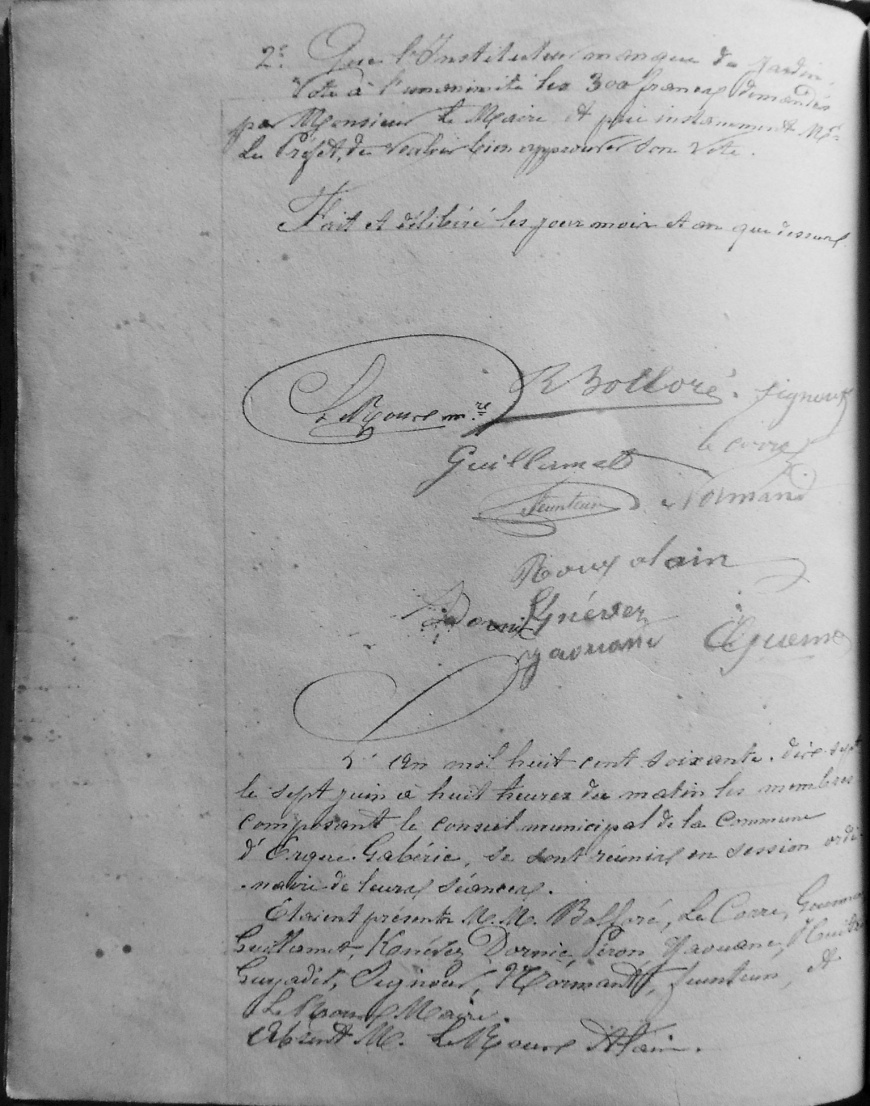 2° Que l'Instituteur manque de Jardin,
Vote à l'unanimité les 300 francs demandés
par Monsieur le Maire et prie instamment Mr
le Préfet, de vouloir bien approuver son vote.
Fait et délibéré les jour mois et an que dessus
Le Roux mre R Bolloré. Signour
le corre
Guillamet
feunteun Normand
Roux alain
Dornic Knévez
yaouanc
L'An mil huit cent soixante-dix-sept
le sept juin à huit heures du matin les membres
composant le conseil municipal de la Commune
d'Ergué-Gabéric, se sont réunis en session ordi-
-naire de leurs séances.
Étaient présents M.M. Bolloré, Le Corre,
Guillamet, Knévez, Dornic, Péron, Yaouanc,
Signour, Normant, feunteun, et
Le Roux Maire.
Absent M. Le Roux Alain.